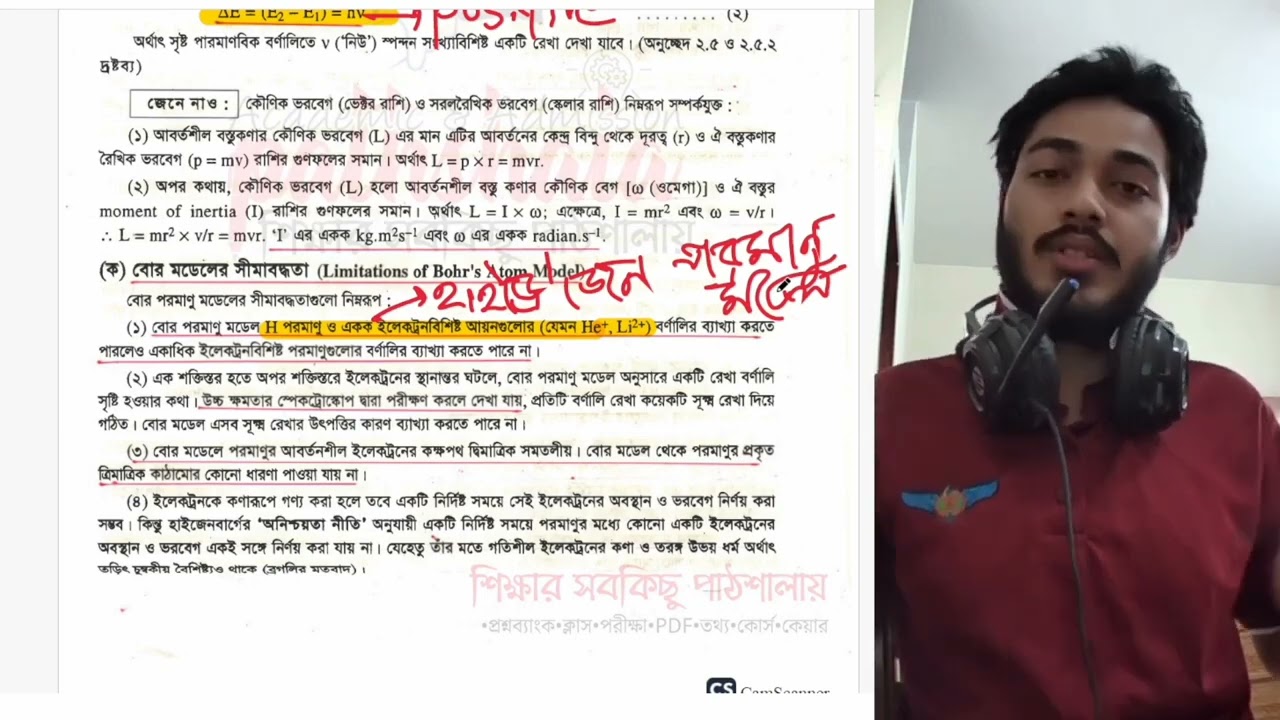 ΔE = (E₂ – E₁) = hν ......... (২)
অর্থাৎ সৃষ্ট পারমাণবিক বর্ণালিতে ν (‘নিউ’) স্পন্দন সংখ্যাবিশিষ্ট একটি রেখা দেখা যাবে। (অনুচ্ছেদ ২.৫ ও ২.৫.২
দ্রষ্টব্য)
জেনে নাও : কৌণিক ভরবেগ (ভেক্টর রাশি) ও সরলরৈখিক ভরবেগ (স্কেলার রাশি) নিম্নরূপ সম্পর্কযুক্ত :
(১) আবর্তশীল বস্তুকণার কৌণিক ভরবেগ (L) এর মান এটির আবর্তনের কেন্দ্র বিন্দু থেকে দূরত্ব (r) ও ঐ বস্তুকণার
রৈখিক ভরবেগ (p = mv) রাশির গুণফলের সমান। অর্থাৎ L = p × r = mvr.
(২) অপর কথায়, কৌণিক ভরবেগ (L) হলো আবর্তনশীল বস্তু কণার কৌণিক বেগ [ω (ওমেগা)] ও ঐ বস্তুর
moment of inertia (I) রাশির গুণফলের সমান। অর্থাৎ L = I × ω; এক্ষেত্রে, I = mr² এবং ω = v/r।
∴ L = mr² × v/r = mvr. ‘I’ এর একক kg.m²s⁻¹ এবং ω এর একক radian.s⁻¹.
(ক) বোর মডেলের সীমাবদ্ধতা (Limitations of Bohr's Atom Model)
হাইড্রোজেন পরমাণু
বোর পরমাণু মডেলের সীমাবদ্ধতাগুলো নিম্নরূপ :
(১) বোর পরমাণু মডেল H পরমাণু ও একক ইলেকট্রনবিশিষ্ট আয়নগুলোর (যেমন He⁺, Li²⁺) বর্ণালির ব্যাখ্যা করতে
পারলেও একাধিক ইলেকট্রনবিশিষ্ট পরমাণুগুলোর বর্ণালির ব্যাখ্যা করতে পারে না।
(২) এক শক্তিস্তর হতে অপর শক্তিস্তরে ইলেকট্রনের স্থানান্তর ঘটলে, বোর পরমাণু মডেল অনুসারে একটি রেখা বর্ণালি
সৃষ্টি হওয়ার কথা। উচ্চ ক্ষমতার স্পেকট্রোস্কোপ দ্বারা পরীক্ষণ করলে দেখা যায়, প্রতিটি বর্ণালি রেখা কয়েকটি সূক্ষ্ম রেখা দিয়ে
গঠিত। বোর মডেল এসব সূক্ষ্ম রেখার উৎপত্তির কারণ ব্যাখ্যা করতে পারে না।
(৩) বোর মডেলে পরমাণুর আবর্তনশীল ইলেকট্রনের কক্ষপথ দ্বিমাত্রিক সমতলীয়। বোর মডেল থেকে পরমাণুর প্রকৃত
ত্রিমাত্রিক কাঠামোর কোনো ধারণা পাওয়া যায় না।
(৪) ইলেকট্রনকে কণারূপে গণ্য করা হলে তবে একটি নির্দিষ্ট সময়ে সেই ইলেকট্রনের অবস্থান ও ভরবেগ নির্ণয় করা
সম্ভব। কিন্তু হাইজেনবার্গের ‘অনিশ্চয়তা নীতি’ অনুযায়ী একটি নির্দিষ্ট সময়ে পরমাণুর মধ্যে কোনো একটি ইলেকট্রনের
অবস্থান ও ভরবেগ একই সঙ্গে নির্ণয় করা যায় না। যেহেতু তাঁর মতে গতিশীল ইলেকট্রনের কণা ও তরঙ্গ উভয় ধর্ম অর্থাৎ
তড়িৎ চুম্বকীয় বৈশিষ্ট্যও থাকে (ব্রগলির মতবাদ)।
শিক্ষার সবকিছু পাঠশালায়
•প্রশ্নব্যাংক•ক্লাস•পরীক্ষা•PDF•তথ্য•কোর্স•কেয়ার
CS CamScanner